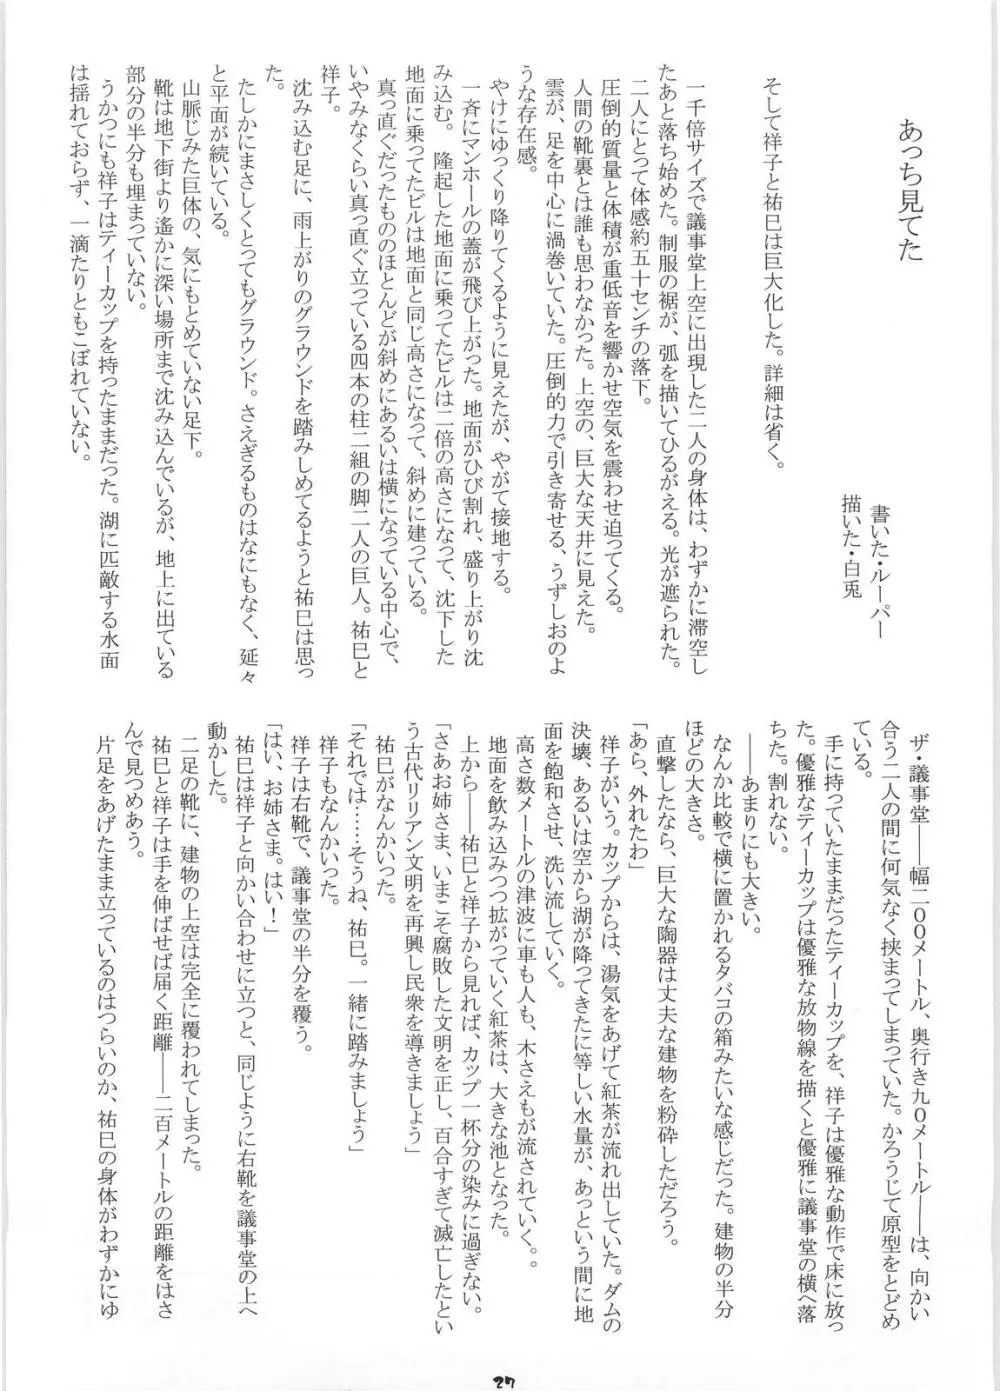 あっち見てた
書いた・ルーパー
描いた・白兎
そして祥子と祐巳は巨大化した。詳細は省く。
一千倍サイズで議事堂上空に出現した二人の身体は、わずかに滞空し
たあと落ち始めた。制服の裾が、弧を描いてひるがえる。光が遮られた。
二人にとって体感約五十センチの落下。
圧倒的質量と体積が重低音を響かせ空気を震わせ迫ってくる。
人間の靴裏とは誰も思わなかった。上空の、巨大な天井に見えた。
雲が、足を中心に渦巻いていた。圧倒的力で引き寄せる、うずしおのよ
うな存在感。
やけにゆっくり降りてくるように見えたが、やがて接地する。
一斉にマンホールの蓋が飛び上がった。地面がひび割れ、盛り上がり沈
み込む。隆起した地面に乗ってたビルは二倍の高さになって、沈下した
地面に乗ってたビルは地面と同じ高さになって、斜めに建っている。
真っ直ぐだったもののほとんどが斜めにあるいは横になっている中心で、
いやみなくらい真っ直ぐ立っている四本の柱二組の脚二人の巨人。祐巳と
祥子。
沈み込む足に、雨上がりのグラウンドを踏みしめてるようと祐巳は思っ
た。
たしかにまさしくとってもグラウンド。さえぎるものはなにもなく、延々
と平面が続いている。
山脈じみた巨体の、気にもとめていない足下。
靴は地下街より遙かに深い場所まで沈み込んでいるが、地上に出ている
部分の半分も埋まっていない。
うかつにも祥子はティーカップを持ったままだった。湖に匹敵する水面
は揺れておらず、一滴たりともこぼれていない。
ザ・議事堂――幅二〇〇メートル、奥行き九〇メートル――は、向かい
合う二人の間に何気なく挟まってしまっていた。かろうじて原型をとどめ
ている。
手に持っていたままだったティーカップを、祥子は優雅な動作で床に放っ
た。優雅なティーカップは優雅な放物線を描くと優雅に議事堂の横へ落
ちた。割れない。
――あまりにも大きい。
なんか比較で横に置かれるタバコの箱みたいな感じだった。建物の半分
ほどの大きさ。
直撃したなら、巨大な陶器は丈夫な建物を粉砕しただろう。
「あら、外れたわ」
祥子がいう。カップからは、湯気をあげて紅茶が流れ出していた。ダムの
決壊、あるいは空から湖が降ってきたに等しい水量が、あっという間に地
面を飽和させ、洗い流していく。
高さ数メートルの津波に車も人も、木さえもが流されていく。。
地面を飲み込みつつ拡がっていく紅茶は、大きな池となった。
上から――祐巳と祥子から見れば、カップ一杯分の染みに過ぎない。
「さあお姉さま、いまこそ腐敗した文明を正し、百合すぎて滅亡したとい
う古代リリアン文明を再興し民衆を導きましょう」
祐巳がなんかいった。
「それでは……そうね、祐巳。一緒に踏みましょう」
祥子もなんかいった。
祥子は右靴で、議事堂の半分を覆う。
「はい、お姉さま。はい！」
祐巳は祥子と向かい合わせに立つと、同じように右靴を議事堂の上へ
動かした。
二足の靴に、建物の上空は完全に覆われてしまった。
祐巳と祥子は手を伸ばせば届く距離――二百メートルの距離をはさ
んで見つめあう。
片足をあげたまま立っているのはつらいのか、祐巳の身体がわずかにゆ
27